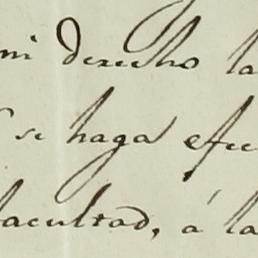 mi derecho la
se haga efec
facultad, á la